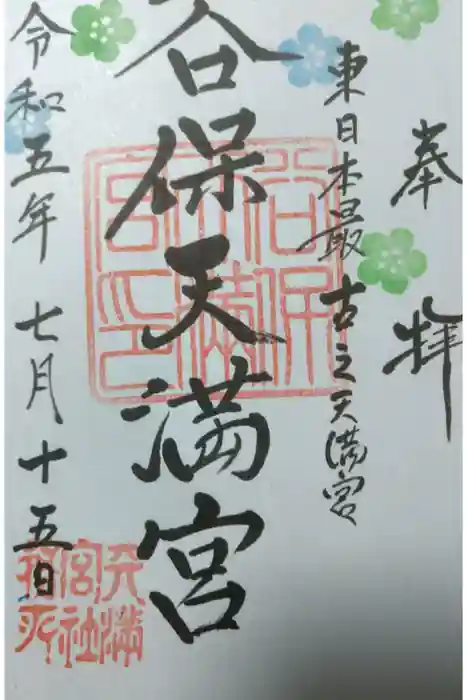 奉拝
東日本最古之天満宮
谷保天満宮
令和五年七月十五日
谷保天満宮印
天満宮社務所